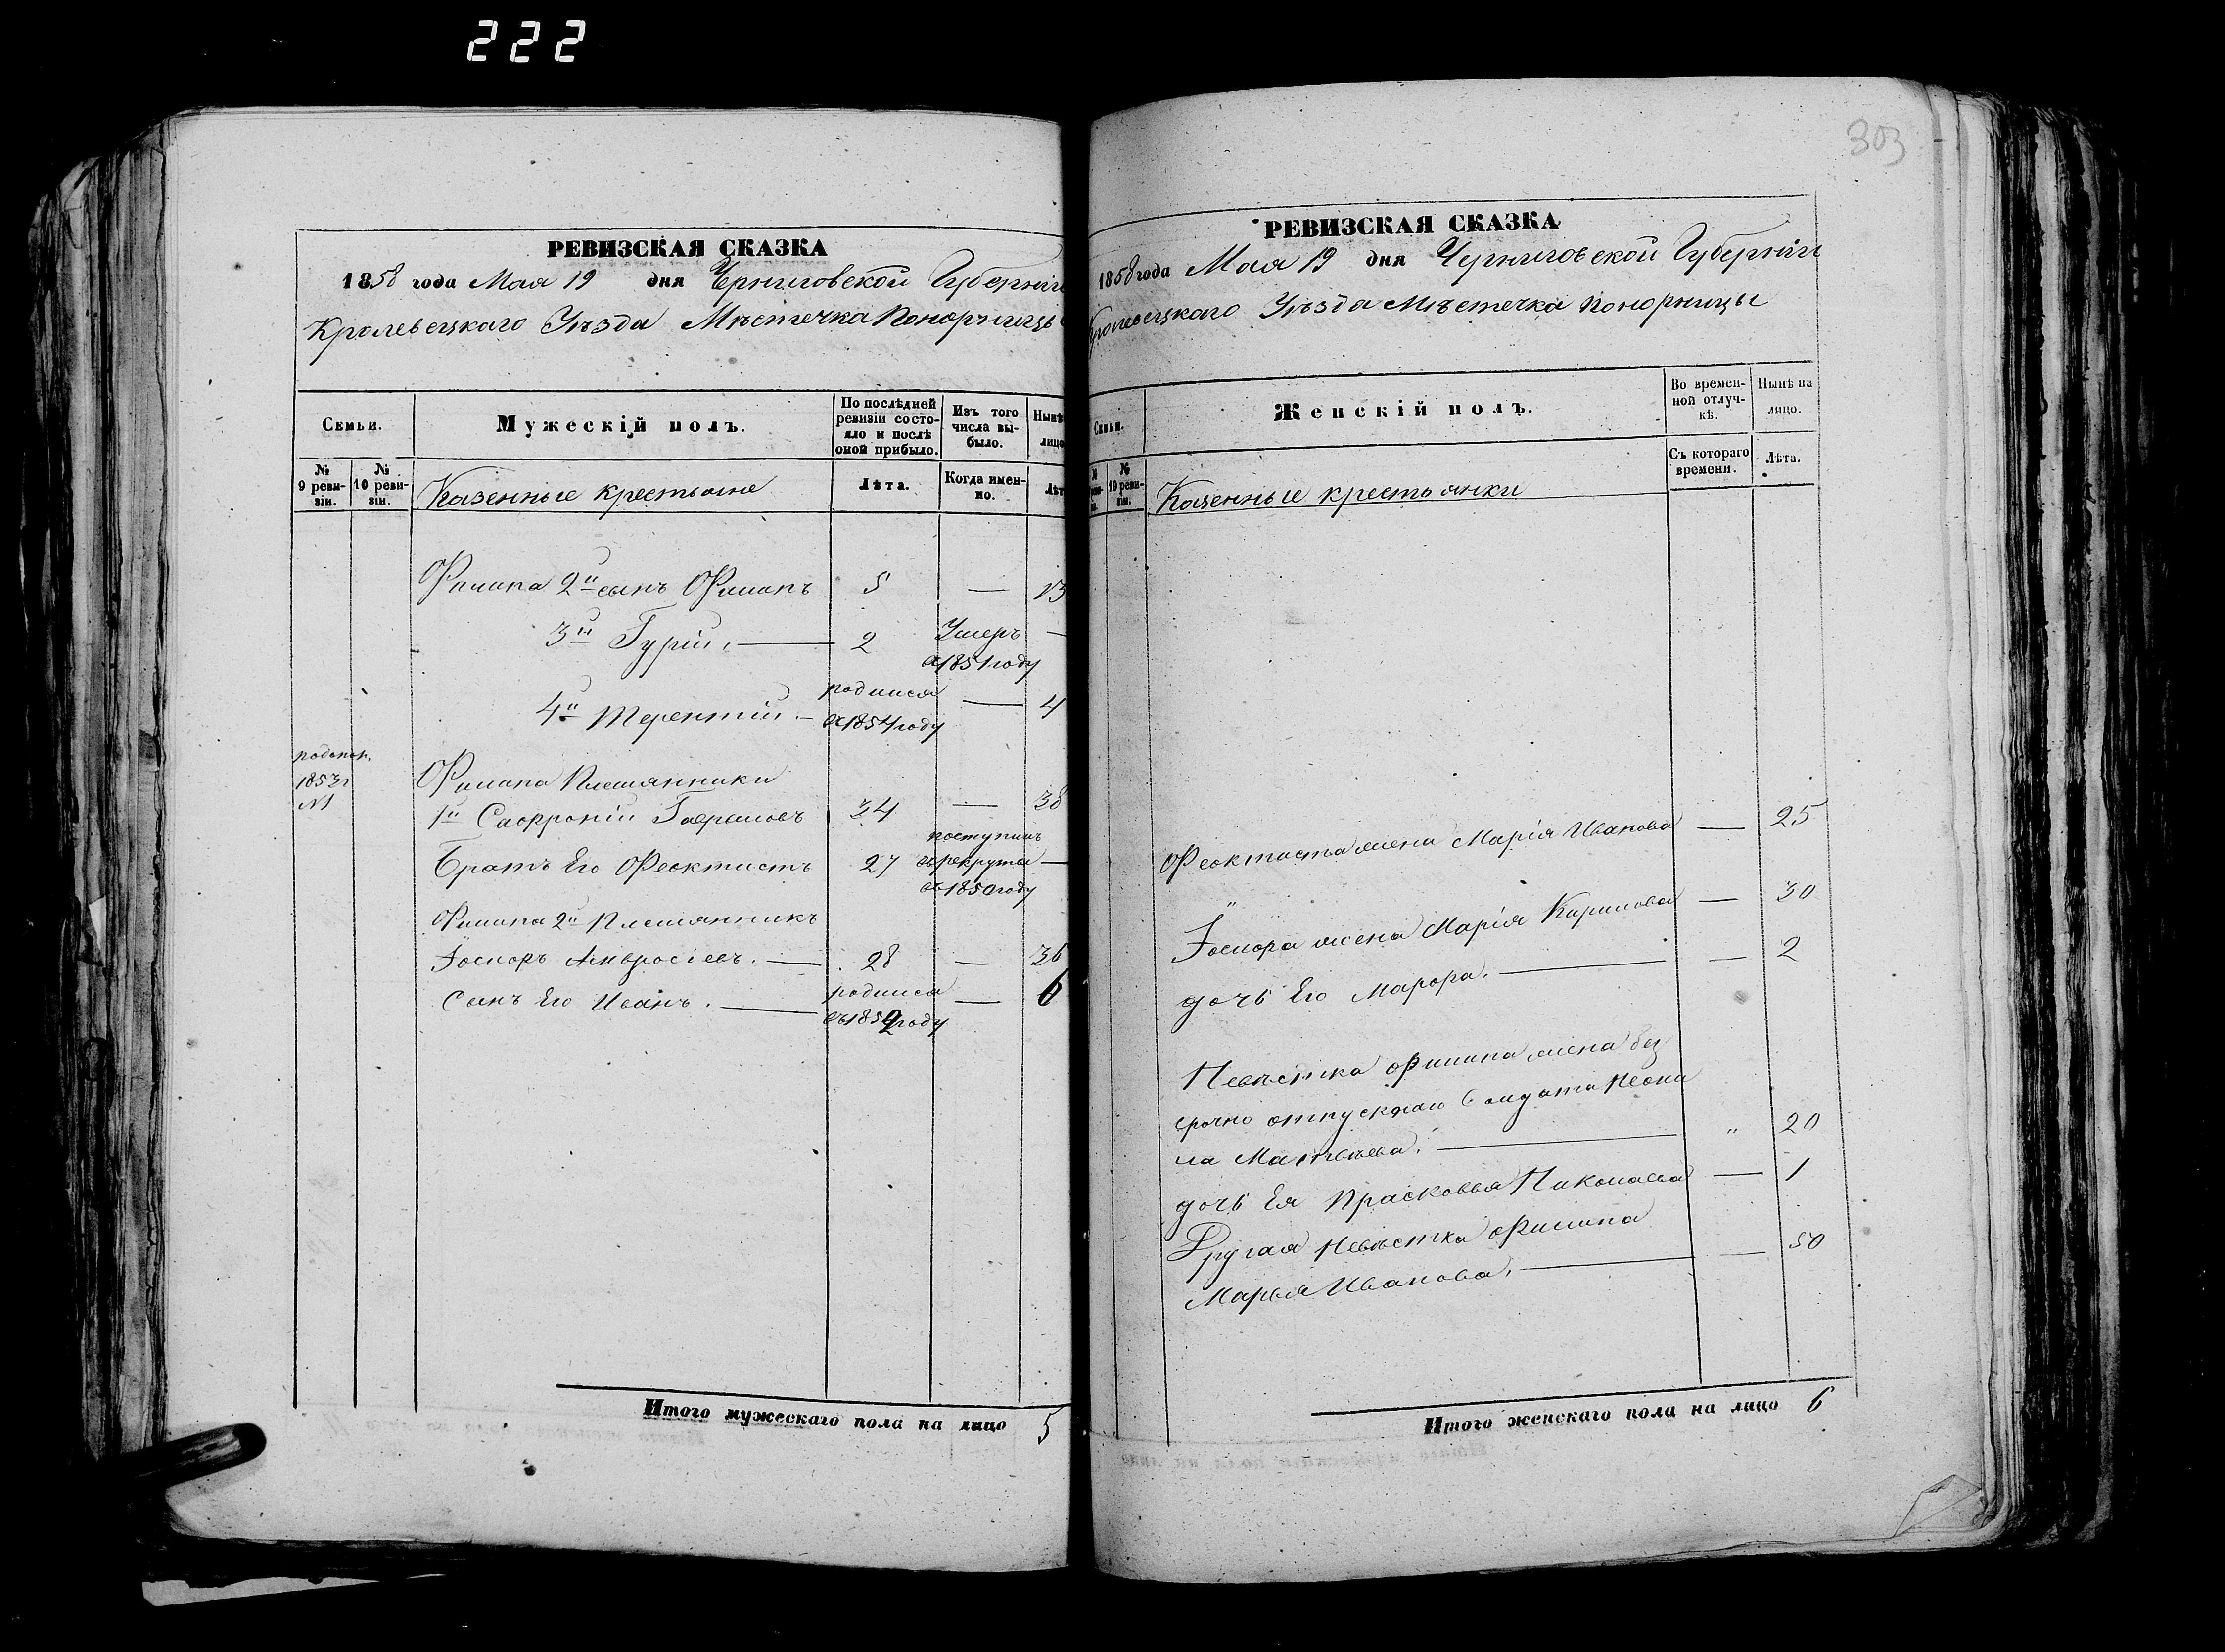 222
303
РЕВИЗСКАЯ СКАЗКА
1858 года Мая 19 дня Черниговской Губерніи
Кролевецкаго Уѣзда Мѣстечка Понорницы
Семьи.
Мужескій полъ.
По послѣдней ревизіи состояло и послѣ оной прибыло.
Изъ того числа выбыло.
Нынѣ
лицо
№ 9 ревизіи.
№ 10 ревизіи.
Казенные крестьяне
Лѣта.
Когда именно.
Лѣт
Филипа 2й сынъ Филипъ 5 — 13
3й Гурій. — 2 Умеръ в 1851 году —
4й Терентій. — родился в 1854 году — 4
1853г
№1
Филипа Племянники
1й Сафроній Гавриловъ 34 — 38
Братъ Его Феоктистъ 27 поступилъ въ рекруты въ 1850 году —
Филипа 2й Племянникъ
Іосифъ Амвросіевъ. — 28 — 36
Сынъ Его Иванъ. — родился въ 1852 году — 6
Итого мужескаго пола на лицо 5
РЕВИЗСКАЯ СКАЗКА
1858 года Мая 19 дня Черниговской Губерніи
Кролевецкаго Уѣзда Мѣстечка Понорницы
Семьи.
Женскій полъ.
Во временной отлучкѣ.
Нынѣ на лицо.
№ 10 ревизіи.
Казенные крестьянки
Съ котораго времени.
Лѣта.
Феоктиста жена Марія Иванова — 25
жена Марія Кирилова — 30
дочь Его — 2
Невѣстка Филипа жена без
срочно отпускнаго Солдата Неони
ла Матвѣева. — " 20
дочь Ея Прасковья Николаева — 1
Другая Невѣстка Филипа
Марья Иванова. — — 50
Итого женскаго пола на лицо 6